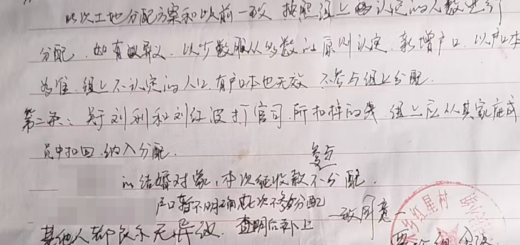 此次土地分配方案和以前一致 按照组上的认定的人数进行
分配，如有异议，以少数服从多数的原则认定，新增户口，以户口本
为准 组上不认定的人口 有户口本也无效 不参与组上分配。
第二条：关于刘利和刘红波打官司，所扣掉的钱 组上应从其家庭成
员中扣回，纳入分配。
参与
的结婚对象，本次征收款不分配。
户口暂不明确的此次不参分配
一致同意
其他人都表示无异议 查明后补上
红星村